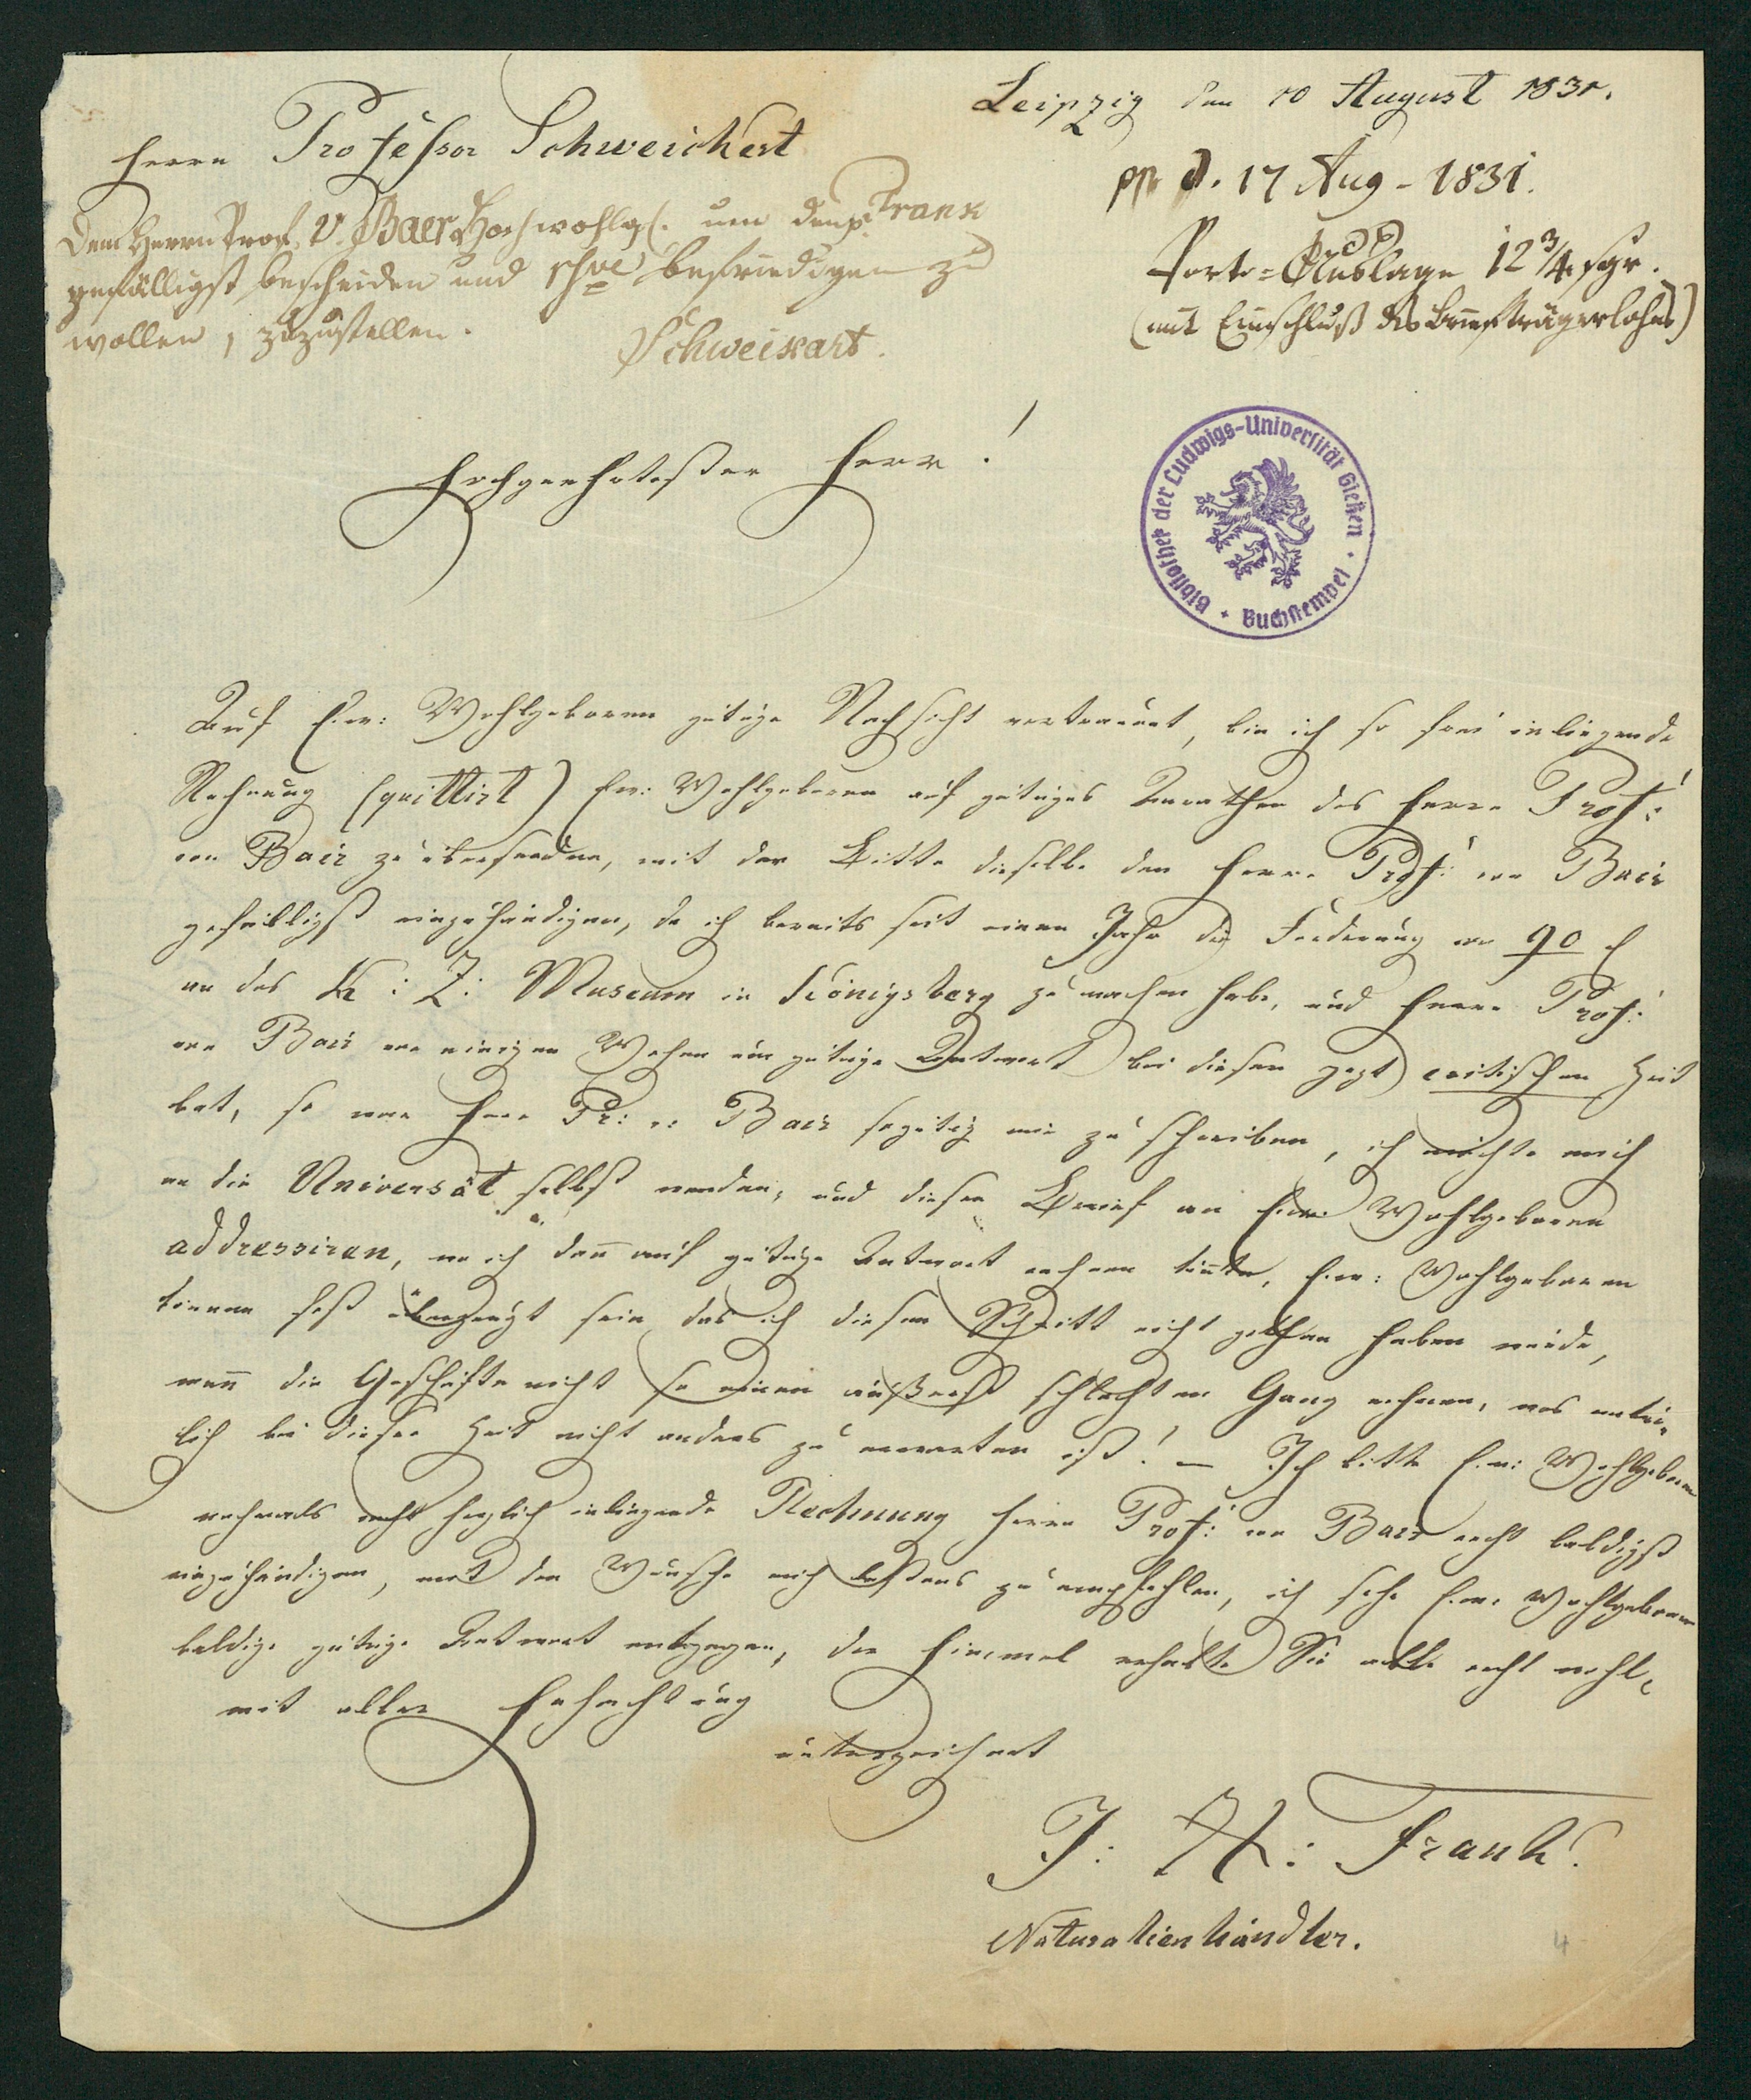 Leipzig den 10 August 1831.
Herrn Professor Schweickert
pp d. 17 Aug - 1831.
Dem Herrn Prof. v. Baer Hochwohlgb. um den p. Frank
gefälligst bescheiden und befriedigen zu
wollen, zuzustellen.
Schweikart.
Porto=Auslage 12 3/4 sgr.
(mit Einschluß des Briefträgerlohns)
Hochgeehrtester Herr!
Bibliothek der Ludwigs-Universität Gießen · Buchstempel ·
Auf Ew: Wohlgeboren gütige Nachsicht vertrauent, bin ich so frei inliegende
Rechnung (quittirt) Ew: Wohlgeboren auf gütiges Anrathen des Herrn Prof:
von Baer zu übersenden, mit der Bitte dieselbe den Herrn Prof: von Baer
gefälligst einzuhändigen, da ich bereits seit einem Jahr die Forderung von 90
an das K: Z: Museum in Königsberg zu machen habe, und Herrn Prof:
von Baer vor einigen Wochen um gütige Antwort bei dieser jezt critischen Zeit
bat, so war Herr Pr: v: Baer so gütig mir zu schreiben, ich möchte mich
an die Universät selbst wenden, und diesen Brief an Ew: Wohlgeboren
addressiren, wo ich dann auf gütige Antwort rechnen könnte, Ew: Wohlgeboren
können fest überzeugt sein das ich diesen Schritt nicht gethan haben würde,
wenn die Geschäfte nicht so einen äußerst schlechten Gang nehmen, was natür-
lich bei dieser Zeit nicht anders zu erwarten ist! — Ich bitte Ew: Wohlgeboren
nochmals recht herzlich inliegende Rechnung Herrn Prof: von Baer recht baldigst
einzuhändigen, mit den Wunsche mich bestens zu empfehlen, ich sehe Ew. Wohlgeboren
baldige gütige Antwort entgegen, der Himmel erhalte Sie alle recht wohl,
mit aller Hochachtung
unterzeichnet
J: H: Frank.
Naturalienhändler.
4